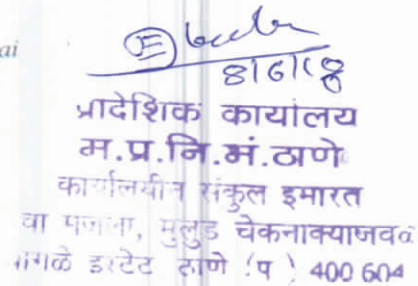 ai
8/6/18
प्रादेशिक कार्यालय
म.प्र.नि.मं.ठाणे
कार्यालयीन संकुल इमारत
वा मजला, मुलुड चेकनाक्याजवळ
वागळे इस्टेट ठाणे (प) 400 604